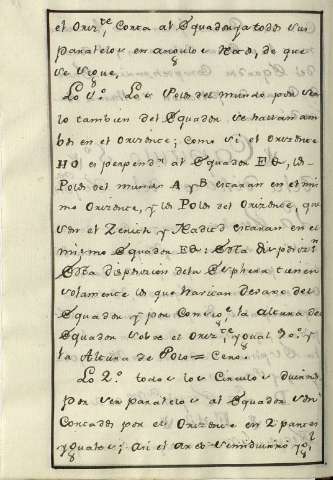 el Oriz.te Corta al Equador y a todos sus
paralelos en angulos Rectos, de que
se sigue,
Lo 1.º Los Polos del mundo por serlo
lo tambien del Equador se hallaran am
bos en el Orizonte; como si el Orizonte
HO es perpend.r al Equador EQ, los
Polos del mundo A y B estaran en el mis
mo Orizonte, y los Polos del Orizonte, que
son el Zenith y Nadir estaran en el
mismo Equador EQ: Esta disposic.n
Esta disposicion de la Esphera tienen
solamente los que havitan Devaxo del
Equador y por Consig.te la altura del
Equador sobre el Oriz.te, ygual 90.º y
la Altura de Polo = Cero.
Lo 2.º todos los Circulos diurnos
por ser paralelos al Equador son
Cortados por el Orizonte en 2 partes
yguales; asi el arco semidiurno